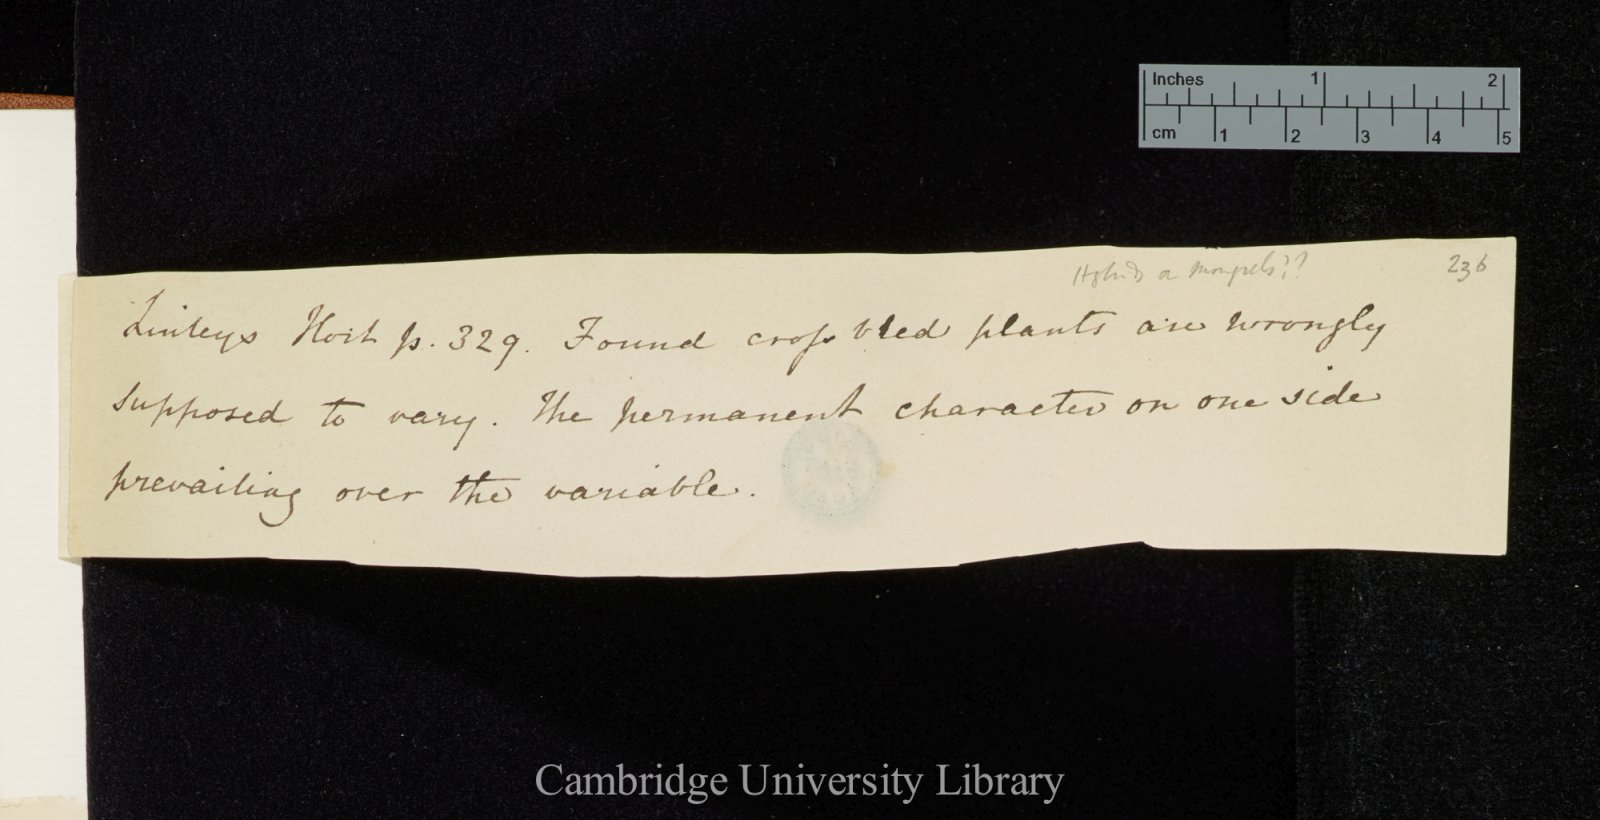 Inches 1 2
cm 1 2 3 4 5
Hybrids or Mongrels??
236
Linleys Hort p. 329. Found cross bred plants are wrongly
supposed to vary. The permanent character on one side
prevailing over the variable.
Cambridge University Library